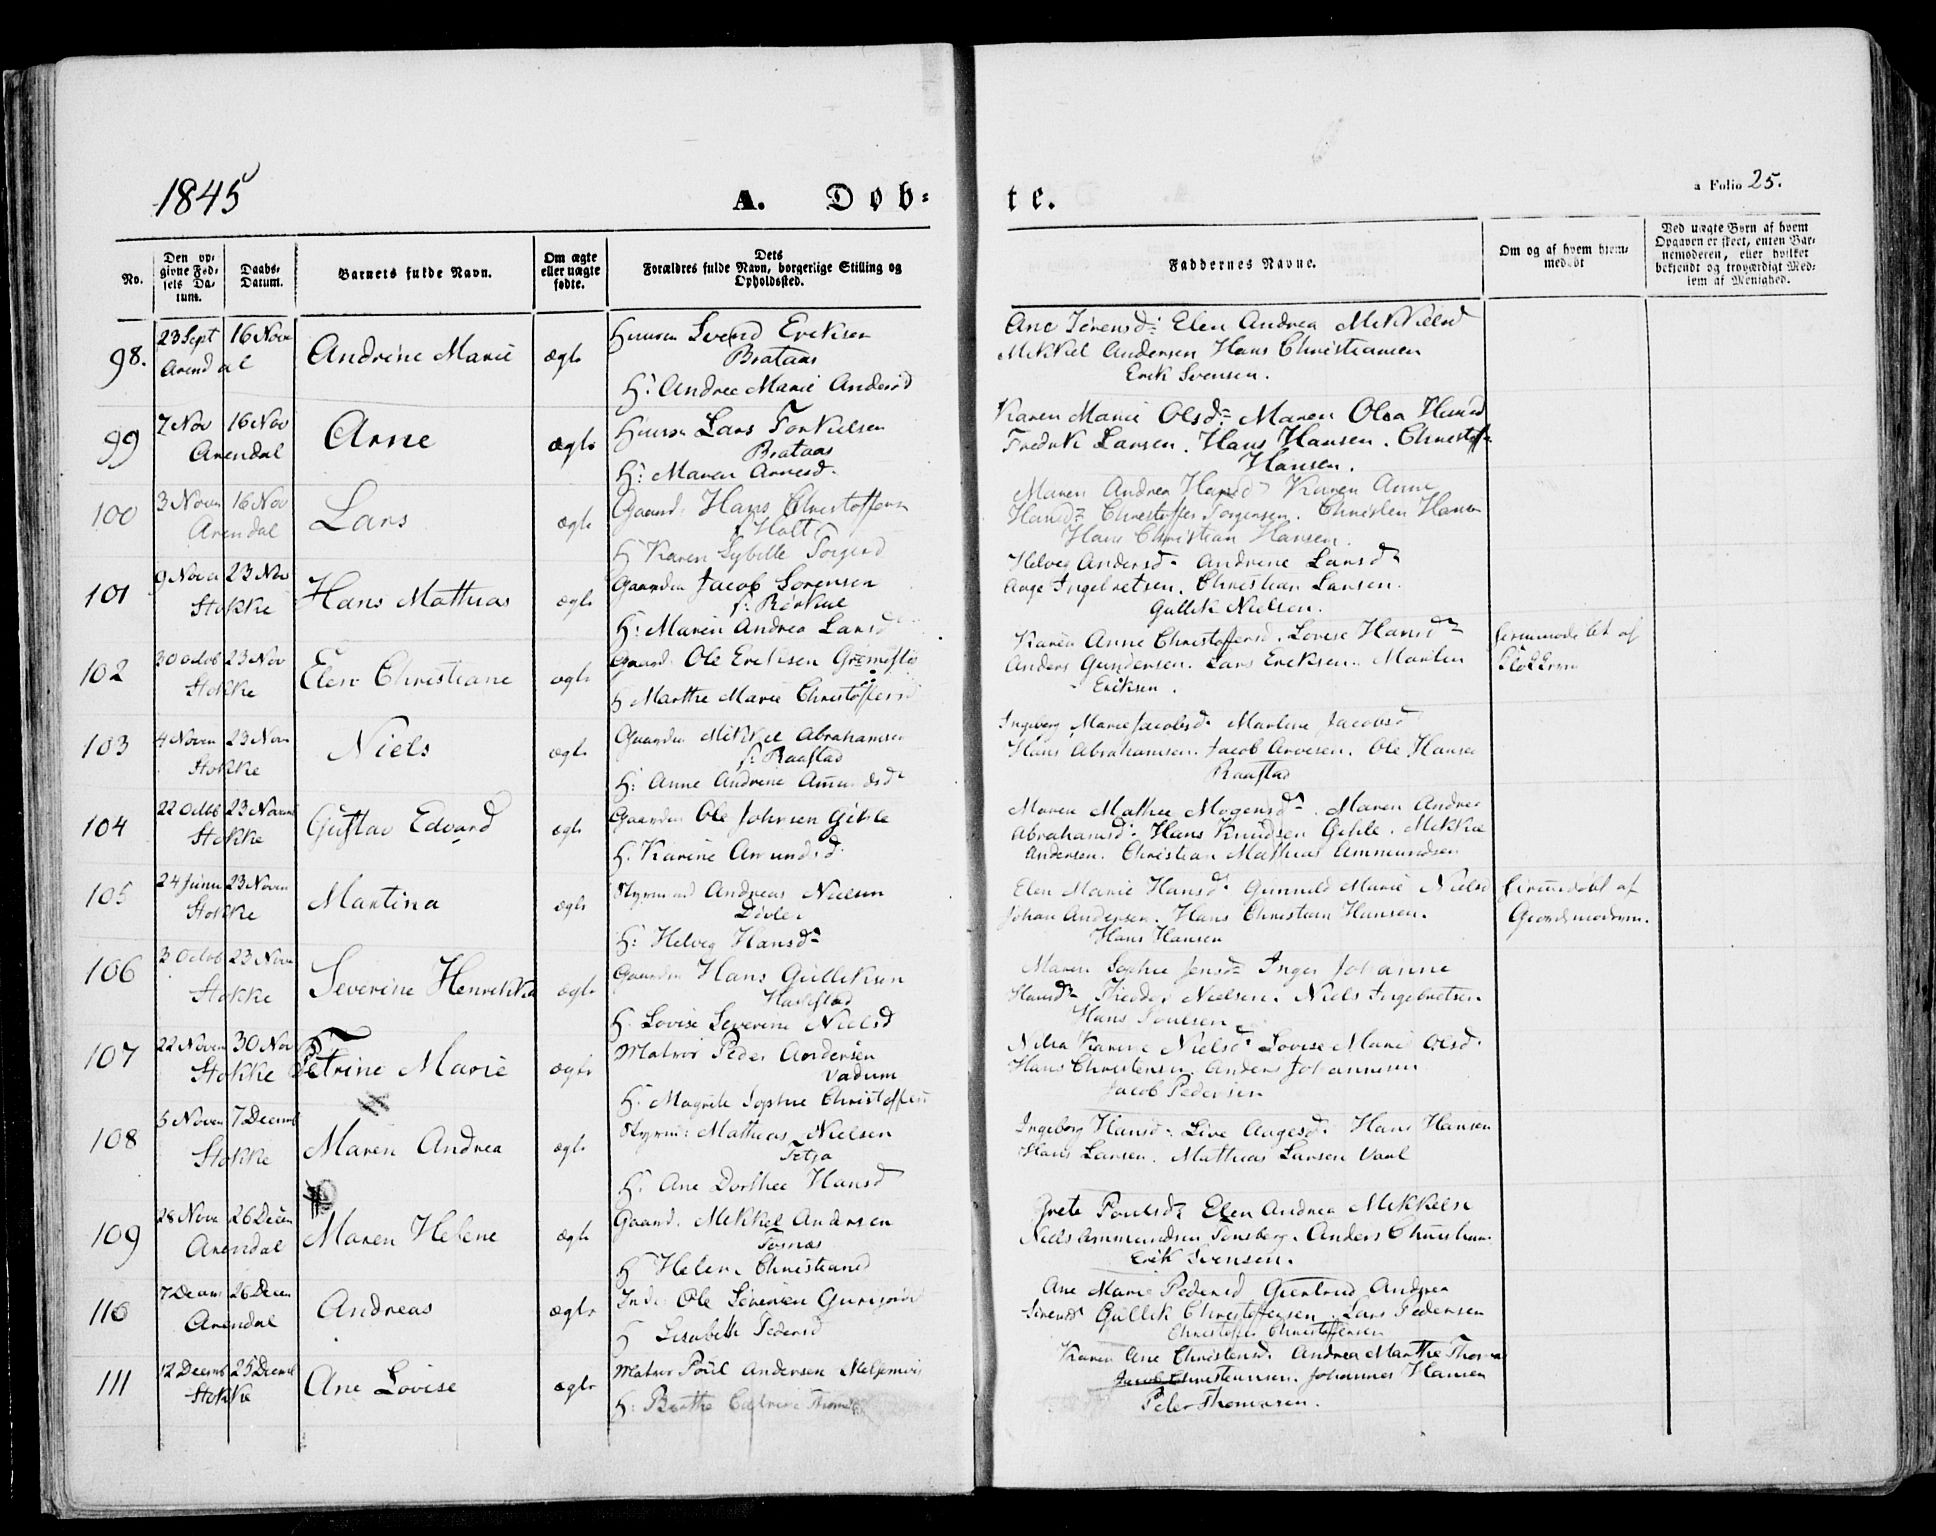 1845
A. Døb-
te.
a Folio 25.
No.
Den op-
givne Fød-
sels Da-
tum.
Daabs-
Datum.
Barnets fulde Navn.
Om ægte
eller uægte
fødte.
Dets
Forældres fulde Navn, borgerlige Stilling og
Opholdssted.
Faddernes Navne.
Om og af hvem hjem-
medøbt
Ved uægte Børn af hvem
Opgaven er skeet, enten Bar-
nemoderen, eller hvilket
bekjendt og troværdigt Med-
lem af Menighed.
98.
23 Sept 16 Novr
Arendal
Andrine Marie
ægte
Svend Eriksen
Brataas
H: Andrea Marie Andersd
Ane Sørensd: Elen Andrea Mikkelsd
Mikkel Andersen Hans Christiansen
Erik Svensen.
99
7 Nov 16 Nov
Arendal
Arne
ægte
Lars Torkielsen
Brataas
H: Maren Arnesd.
Karen Marie Olsd: Maren Olea
Fredrik Larsen. Hans Hansen. Christoff:
Hansen.
100
3 Novr 16 Nov
Arendal
Lars
ægte
Gaard: Hans Christoffersen
Holt
H Karen Sybille
Maren Andrea Hansd Karen Anne
Hansd: Christoffer Torgersen. Christen Hansen
Hans Christian Hansen.
101
9 Novr 23 Nov
Stokke
Hans Mathias
ægte
Gaardm Jacob Sørensen
H: Maren Andrea Larsd
Helveg Andersd: Andrine Larsd:
Aage Ingebretsen. Christian Larsen.
Gullik Nielsen.
102
30 Octob 23 Nov
Stokke
Elen Christiane
ægte
Gaard: Ole Eriksen
H Marthe Marie Christoffersd
Karen Anne Christoffersd. Lovise Hansd:
Anders Gundersen. Lars Eriksen. Martin
Eriksen.
hjemmedøbt af
103
4 Noven 23 Nov
Stokke
Niels
ægte
Gaardm Mikkel Abrahamsen
Raastad
H: Anne Andrine
Ingeborg Marie Jacobsd. Marlene Jacobsd
Hans Abrahamsen. Jacob Arvesen. Ole Hansen
Raastad
104
22 Octob 23 Novem
Stokke
Gustav Edvard
ægte
Gaardm Ole Johnsen Gihle
H. Karine Amundsd.
Maren Mathea Mogensd. Maren Andrea
Abrahamsd: Hans Knudsen Gihle. Mikkel
Andersen. Christian Mathias Ammundsen
105
24 Juni 23 Noven
Stokke
Martina
ægte
Styrmand Andreas Nielsen
H: Helveg Hansd:
Elen Marie Hansd: Gunnild Marie Nielsd
Johan Andersen. Hans Christian Hansen.
Hans Hansen
hjemmedøbt af
Gjordemoderen.
106
3 Octob 23 Nov
Stokke
Severine Henrikka
ægte
Gaardm Hans Gulliksen
H. Lovise Severine Nielsd
Maren Sophie Jensd: Inger Johanne
Hansd: Theodor Nielsen. Niels Ingebretsen
Hans Poulsen
107
22 Noven 30 Nov
Stokke
Petrine Marie
ægte
Matros Peder Andersen
Vadum
H. Magrite Sophie Christoffersd
Nilia Karine Nielsd: Lovise Marie Olsd.
Hans Christensen. Anders Johannesen
Jacob Pedersen
108
5 Noven 7 Decemb
Stokke
Maren Andrea
ægte
Styrmd: Mathias Nielsen
H. Ane Dorthee Hansd
Ingeborg Hansd: Live Aagesd. Hans Hansen
Hans Larsen. Mathias Larsen
109
28 Nove 26 Decen
Arendal
Maren Helene
ægte
Gaard. Mikkel Andersen
H Helene Christiansd
Grete Poulsd: Elen Andrea Mikkelsd
Niels Ammundsen Tønsberg. Anders
Erik Svensen.
110
7 Decem 26 Decen
Arendal
Andreas
ægte
Ind: Ole Sørensen
H Lisabeth Pedersd
Ane Marie Pedersd Giertrud Andrea
Sørensd Gullik Christoffersen. Lars Pedersen
Christoffer Christoffersen
111
12 Decemb 25 Decemb
Stokke
Ane Lovise
ægte
Matros Poul Andersen
H: Berthe
Karen Ane Christensd. Andrea Marthe
Jacob Christiansen. Johannes Hansen
Peter Thomasen.